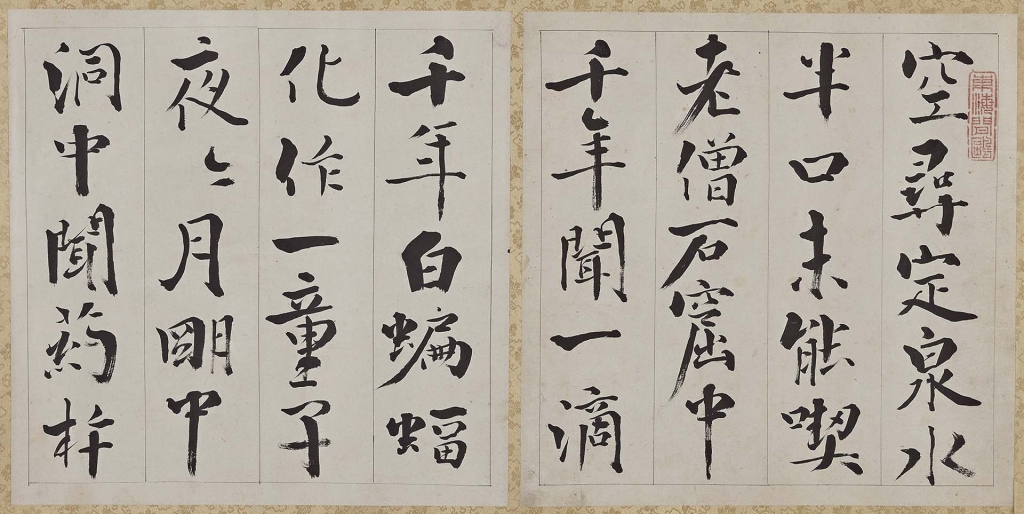 空尋定泉水
半口未能喫
老僧石窟中
千年聞一滴
千年白蝙蝠
化作一童子
夜〻月明中
洞中聞藥杵